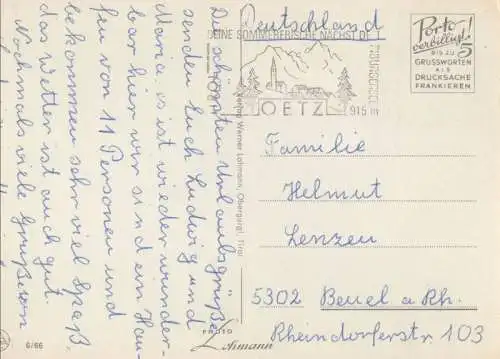 Die schönsten Urlaubsgrüße
senden Euch Ludwig und
Maria es ist wieder wunder-
bar hier wir sind ein Hau-
fen von 11 Personen und
bekommen sehr viel Spaß.
das Wetter ist auch gut.
Nochmals viele Grüße von
6/66
Verlag Werner Lohmann, Obergurgl, Tirol
PHOTO
Lohmann
Deutschland
SEINE SOMMERFRISCHE NÄCHST DE
OETZ
915 m
Porto
verbilligt!
5
BIS ZU
GRUSSWORTEN
ALS
DRUCKSACHE
FRANKIEREN
Familie
Helmut
Lenzen
5302 Beuel a Rh.
Rheindorferstr 103